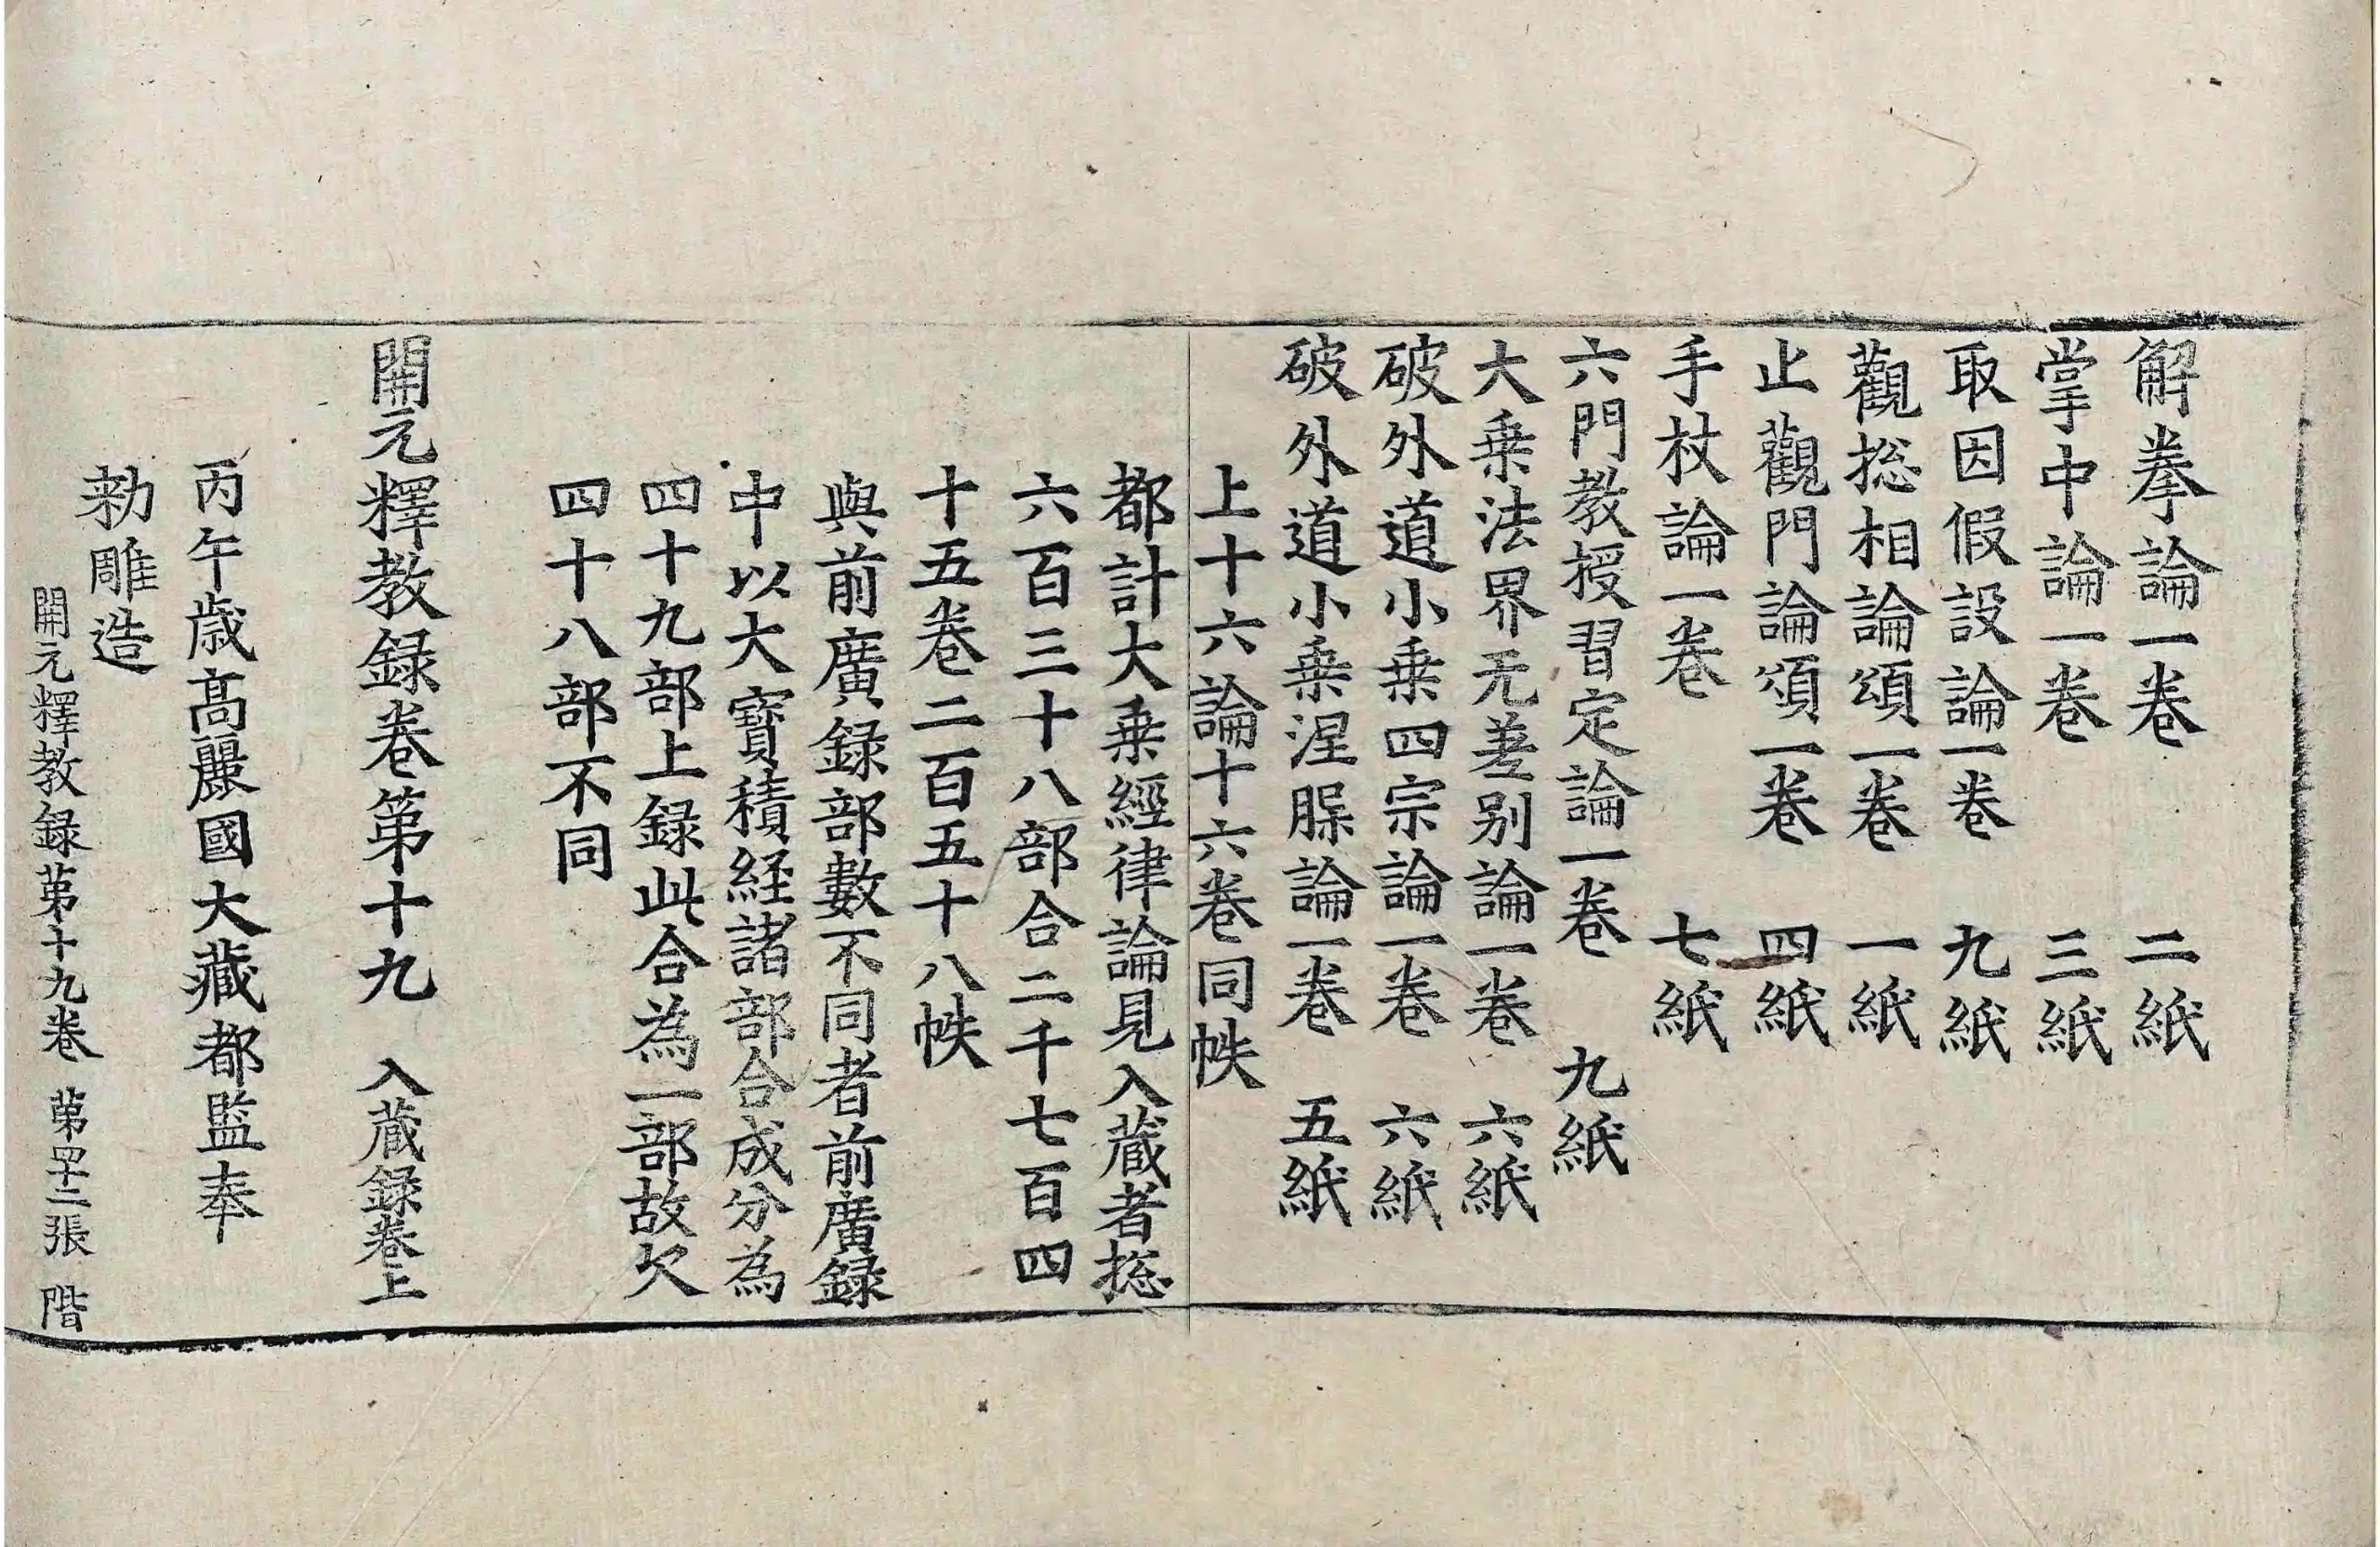 解拳論一卷　二紙
掌中論一卷　三紙
取因假設論一卷　九紙
觀捴相論頌一卷　一紙
止觀門論頌一卷　四紙
手杖論一卷　七紙
六門教授習定論一卷　九紙
大乗法界无差别論一卷　六紙
破外道小乗四宗論一卷　六紙
破外道小乗涅槃論一卷　五紙
上十六論十六卷同帙
都計大乗經律論見入蔵者捴
六百三十八部合二千七百四
十五卷二百五十八帙
與前廣録部數不同者前廣録
中以大寳積経諸部合成分為
四十九部上録此合為一部故欠
四十八部不同
開元釋教録卷第十九　入蔵録卷上
丙午歳高麗國大藏都監奉
勑雕造
開元釋教録第十九卷　第四十二張　階